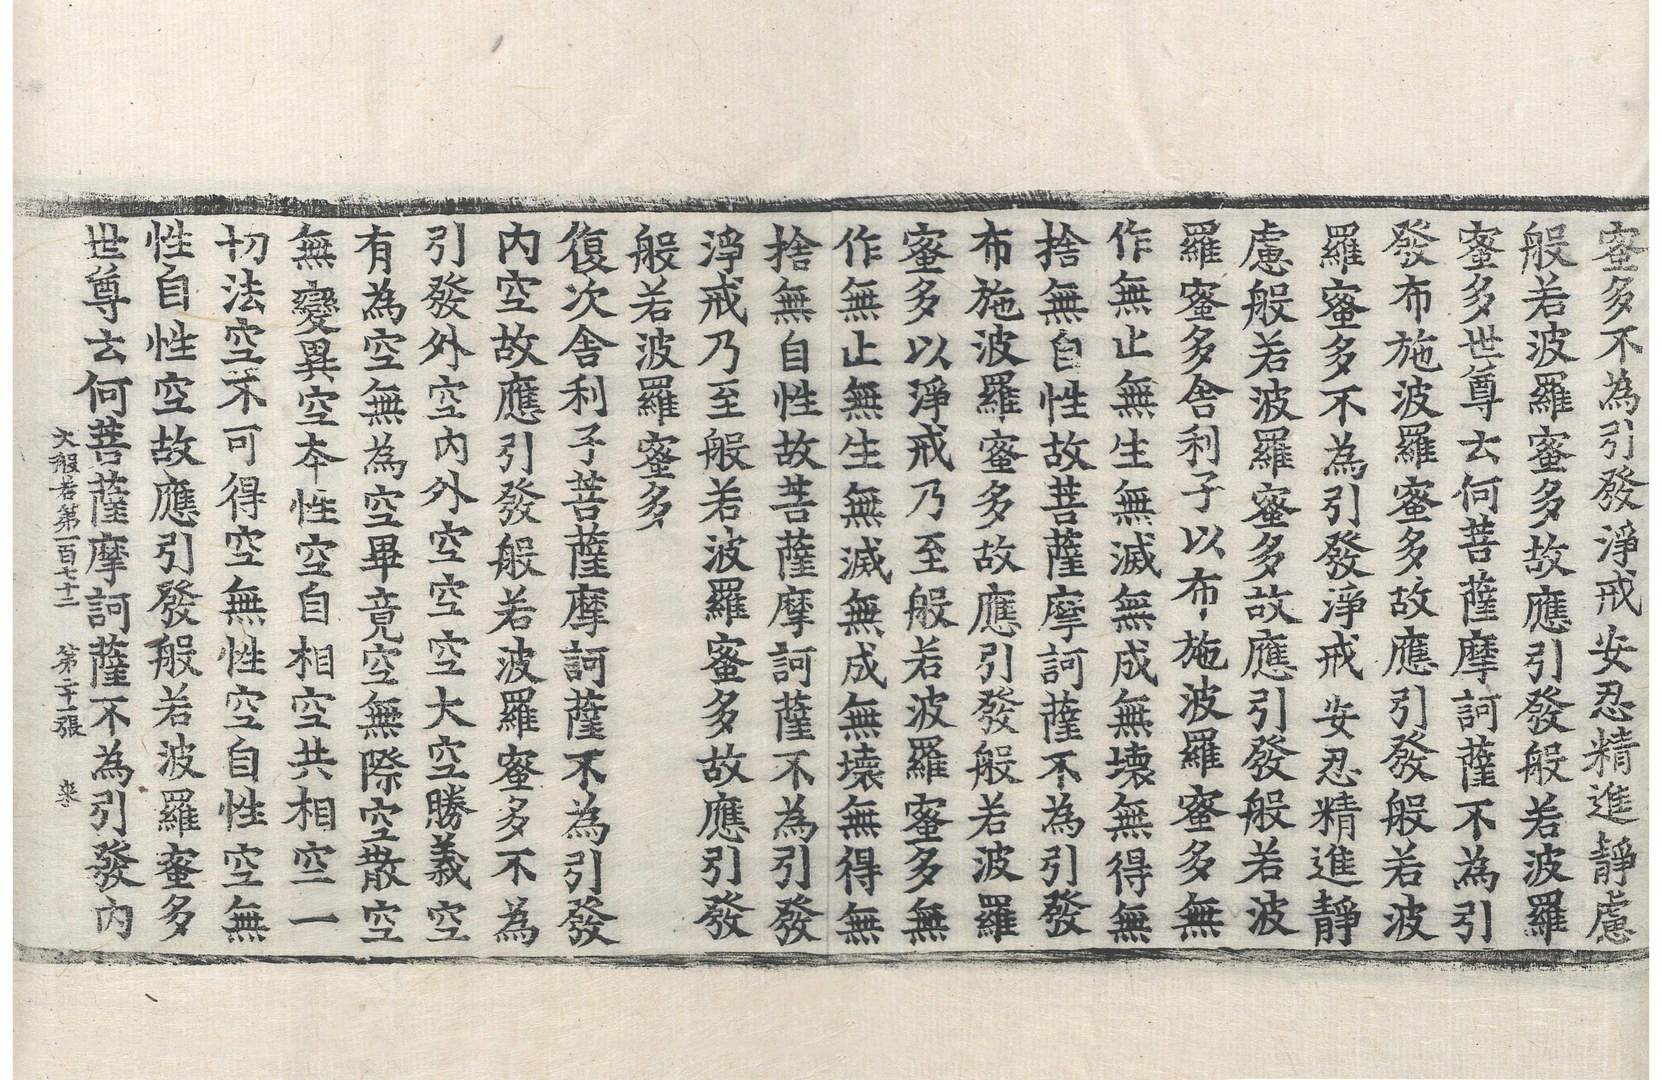 蜜多不為引發淨戒安忍精進靜慮
般若波羅蜜多故應引發般若波羅
蜜多世尊云何菩薩摩訶薩不為引
發布施波羅蜜多故應引發般若波
羅蜜多不為引發淨戒安忍精進靜
慮般若波羅蜜多故應引發般若波
羅蜜多舍利子以布施波羅蜜多無
作無止無生無滅無成無壞無得無
捨無自性故菩薩摩訶薩不為引發
布施波羅蜜多故應引發般若波羅
蜜多以淨戒乃至般若波羅蜜多無
作無止無生無滅無成無壞無得無
捨無自性故菩薩摩訶薩不為引發
淨戒乃至般若波羅蜜多故應引發
般若波羅蜜多
復次舍利子菩薩摩訶薩不為引發
內空故應引發般若波羅蜜多不為
引發外空內外空空空大空勝義空
有為空無為空畢竟空無際空散空
無變異空本性空自相空共相空一
切法空不可得空無性空自性空無
性自性空故應引發般若波羅蜜多
世尊云何菩薩摩訶薩不為引發內
大般若第一百七十二 第二十一張 來